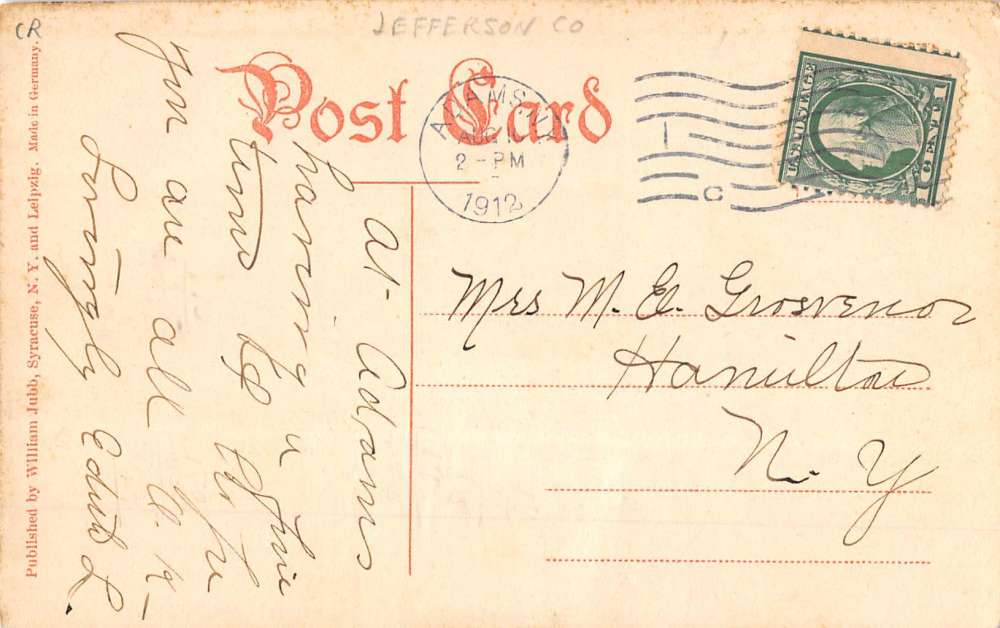 CR
JEFFERSON CO
Post Card
ADAMS, N.Y.
AUG
2 - PM
1912
C
U.S. POSTAGE
1 CENT 1
At Adams
having a fine
time
you are all O.K.
Lovingly Edith L.
Mrs M. E. Grosvenor
Hamilton
N. Y
Published by William Jubb, Syracuse, N. Y. and Leipzig. Made in Germany.